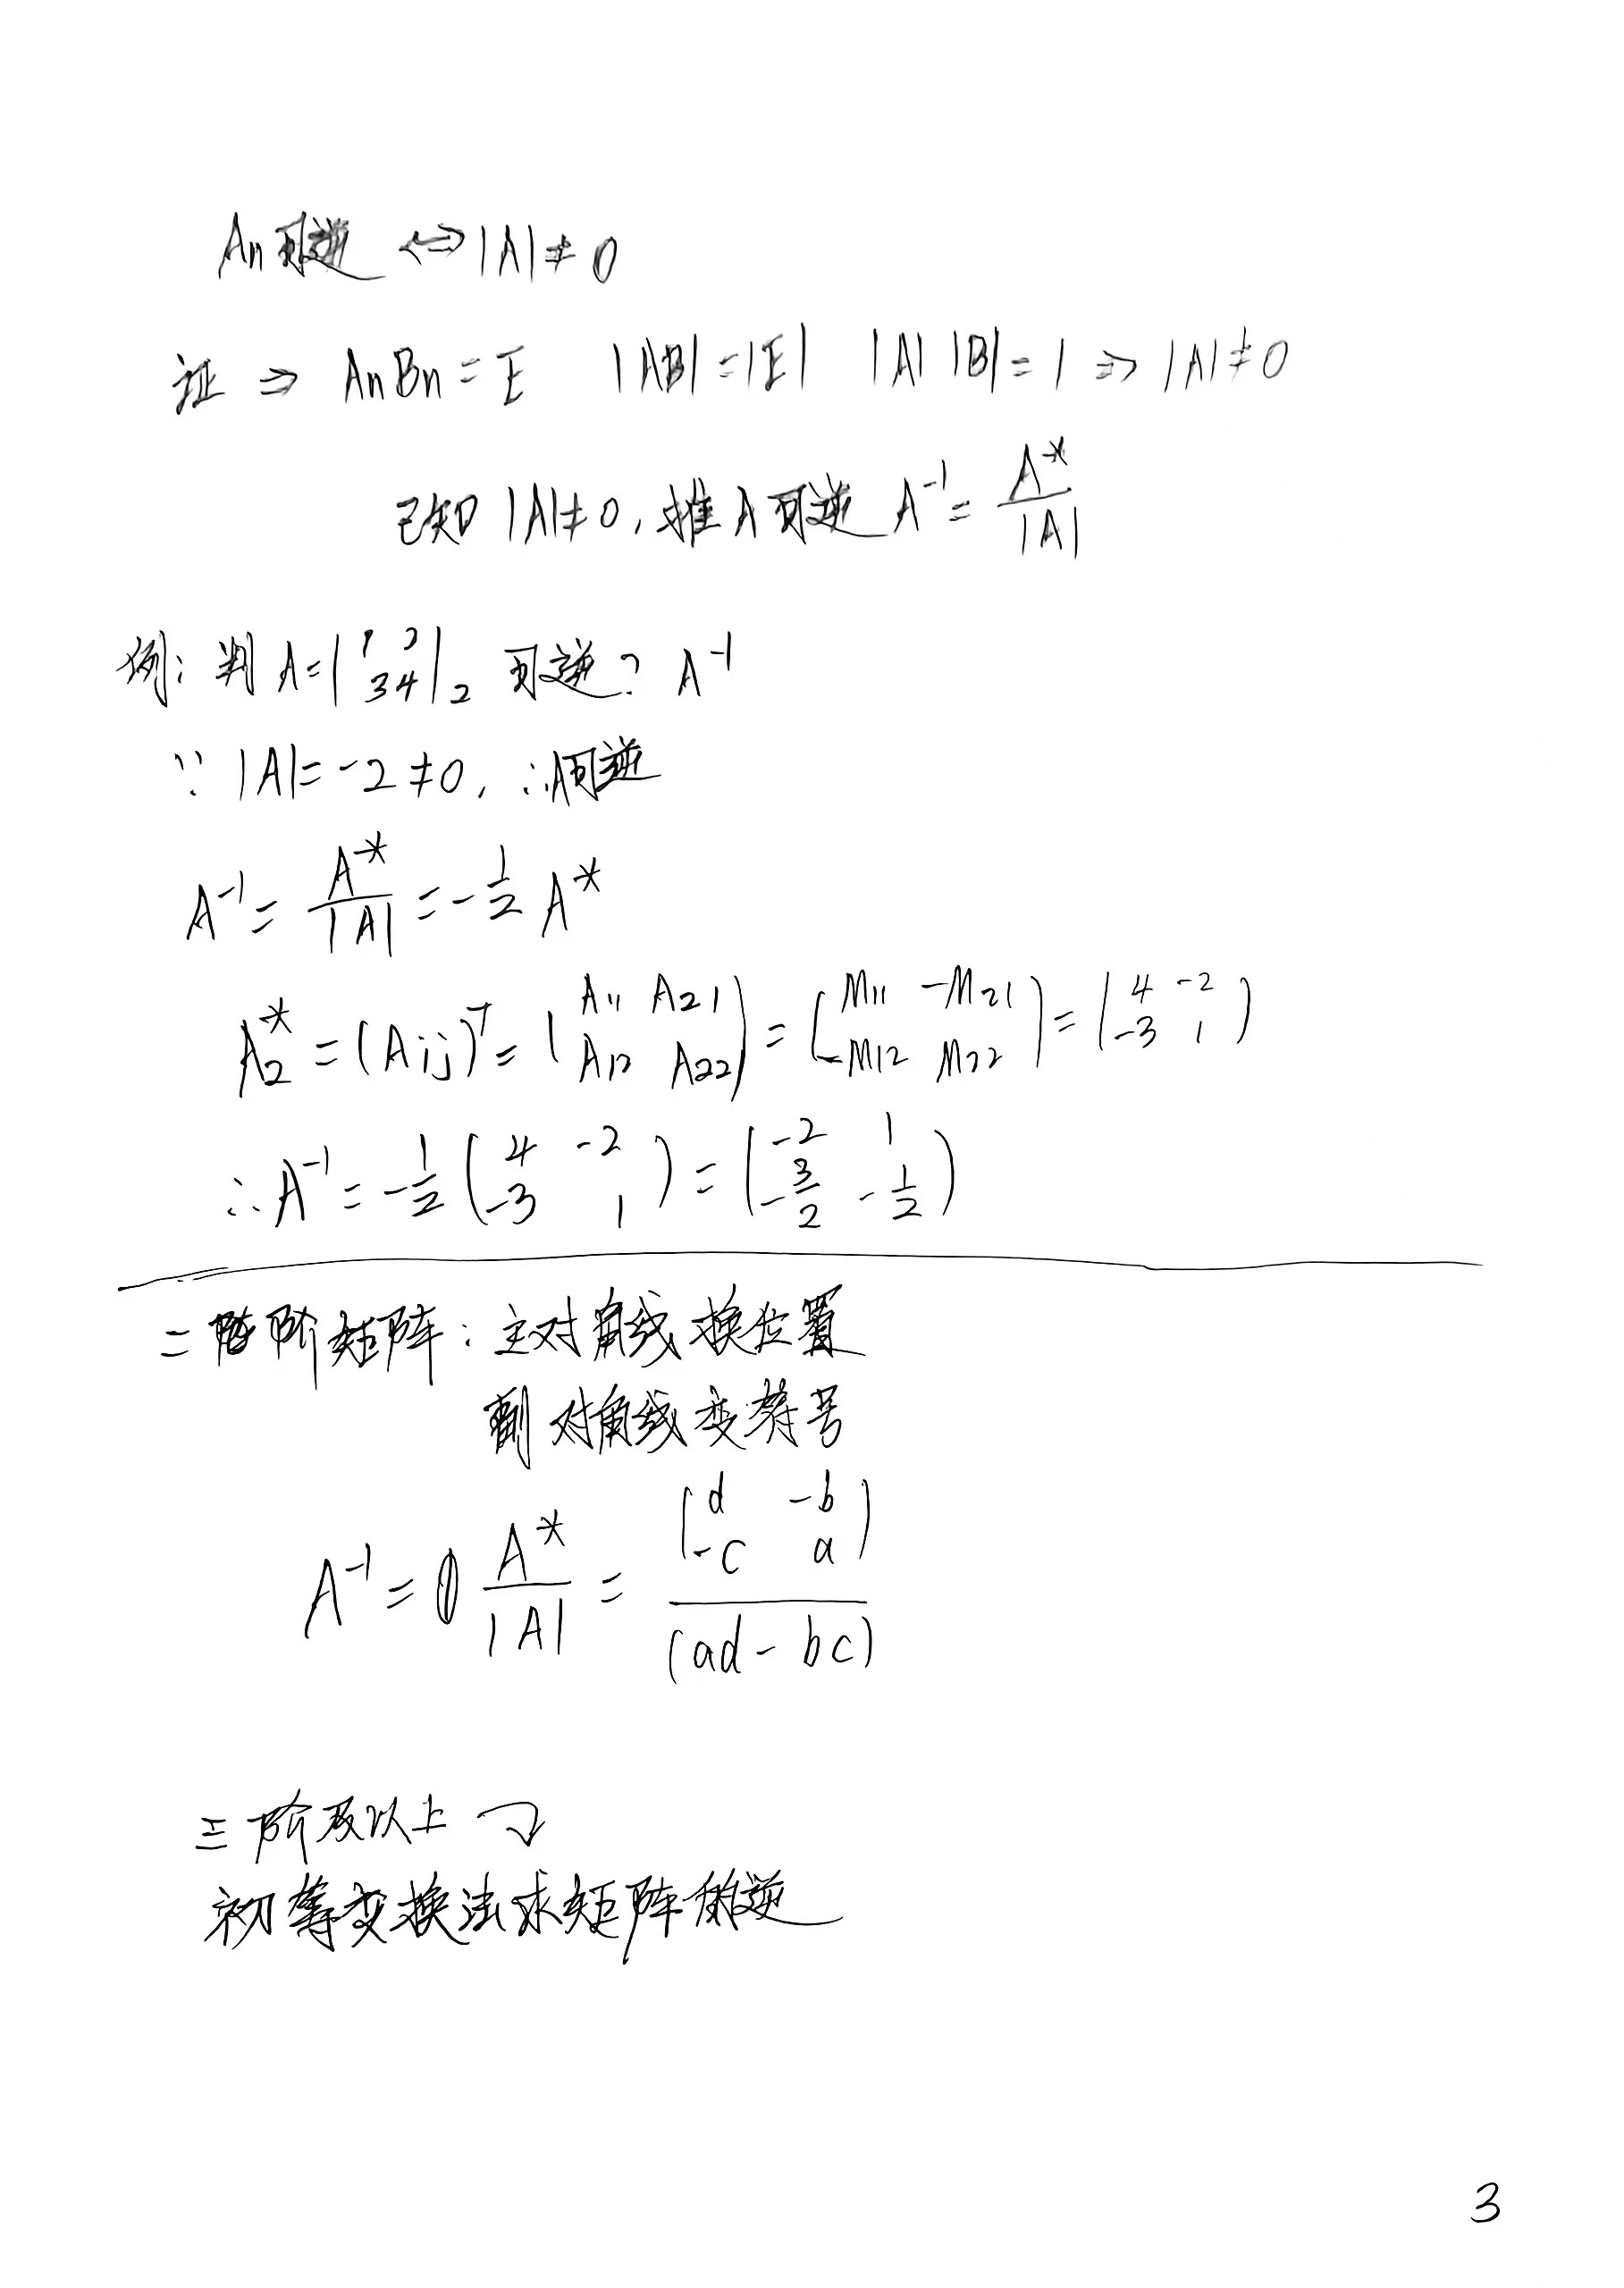 An可逆 ⇔ |A|≠0
证 ⇒ AnBn=E |AB|=|E| |A||B|=1 ⇒ |A|≠0
已知|A|≠0,推A可逆 A⁻¹=A*/|A|
例:判A=|1 2; 3 4|₂ 可逆? A⁻¹
∵ |A|=-2≠0, ∴A可逆
A⁻¹=A*/|A|=-1/2 A*
A₂*=(Aij)ᵀ=(A11 A21; A12 A22)=(M11 -M21; -M12 M22)=(4 -2; -3 1)
∴A⁻¹=-1/2(4 -2; -3 1)=(-2 1; -3/2 -1/2)
二阶矩阵:主对角线换位置
副对角线变符号
A⁻¹=A*/|A|=(d -b; -c a)/(ad-bc)
三阶及以上
初等变换法求矩阵的逆
3